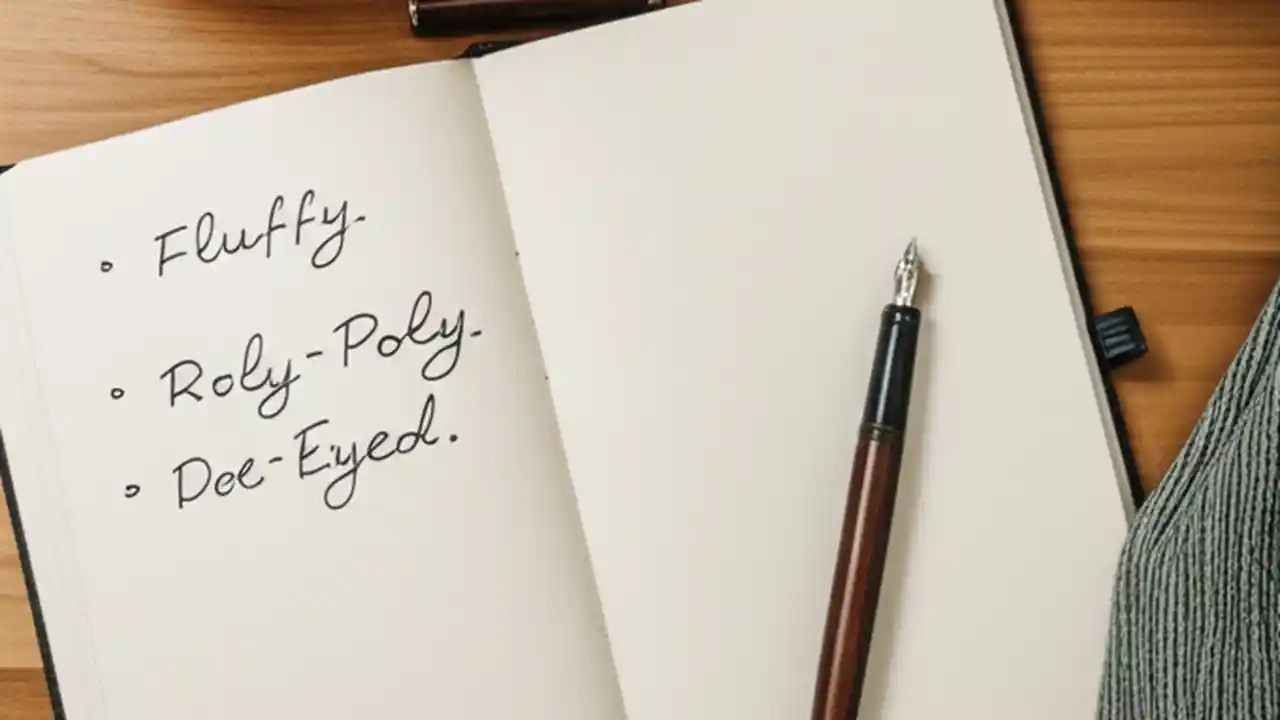 • Fluffy.
• Roly-Poly.
• Doe-Eyed.